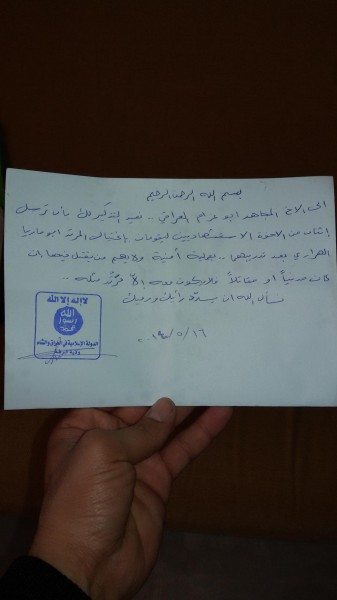 بسم الله الرحمن الرحيم
الى الاخ المجاهد ابو عزام العراقي .. نعيد التذكير لك بأن ترسل
اثنان من الاخوة الاستشهاديين ليقومان باغتيال المرتد ابو ماريا
الهراري بعد تدريبهما .. بعملية أمنية ولا يهم من يقتل فيها ان
كان مدنياً او مقاتلاً فالذي يكون معه الا مرتد مثله ..
نسأل الله ان يسدد رأيك ورميك
لا إله إلا الله
الله
رسول
محمد
الدولة الإسلامية في العراق والشام